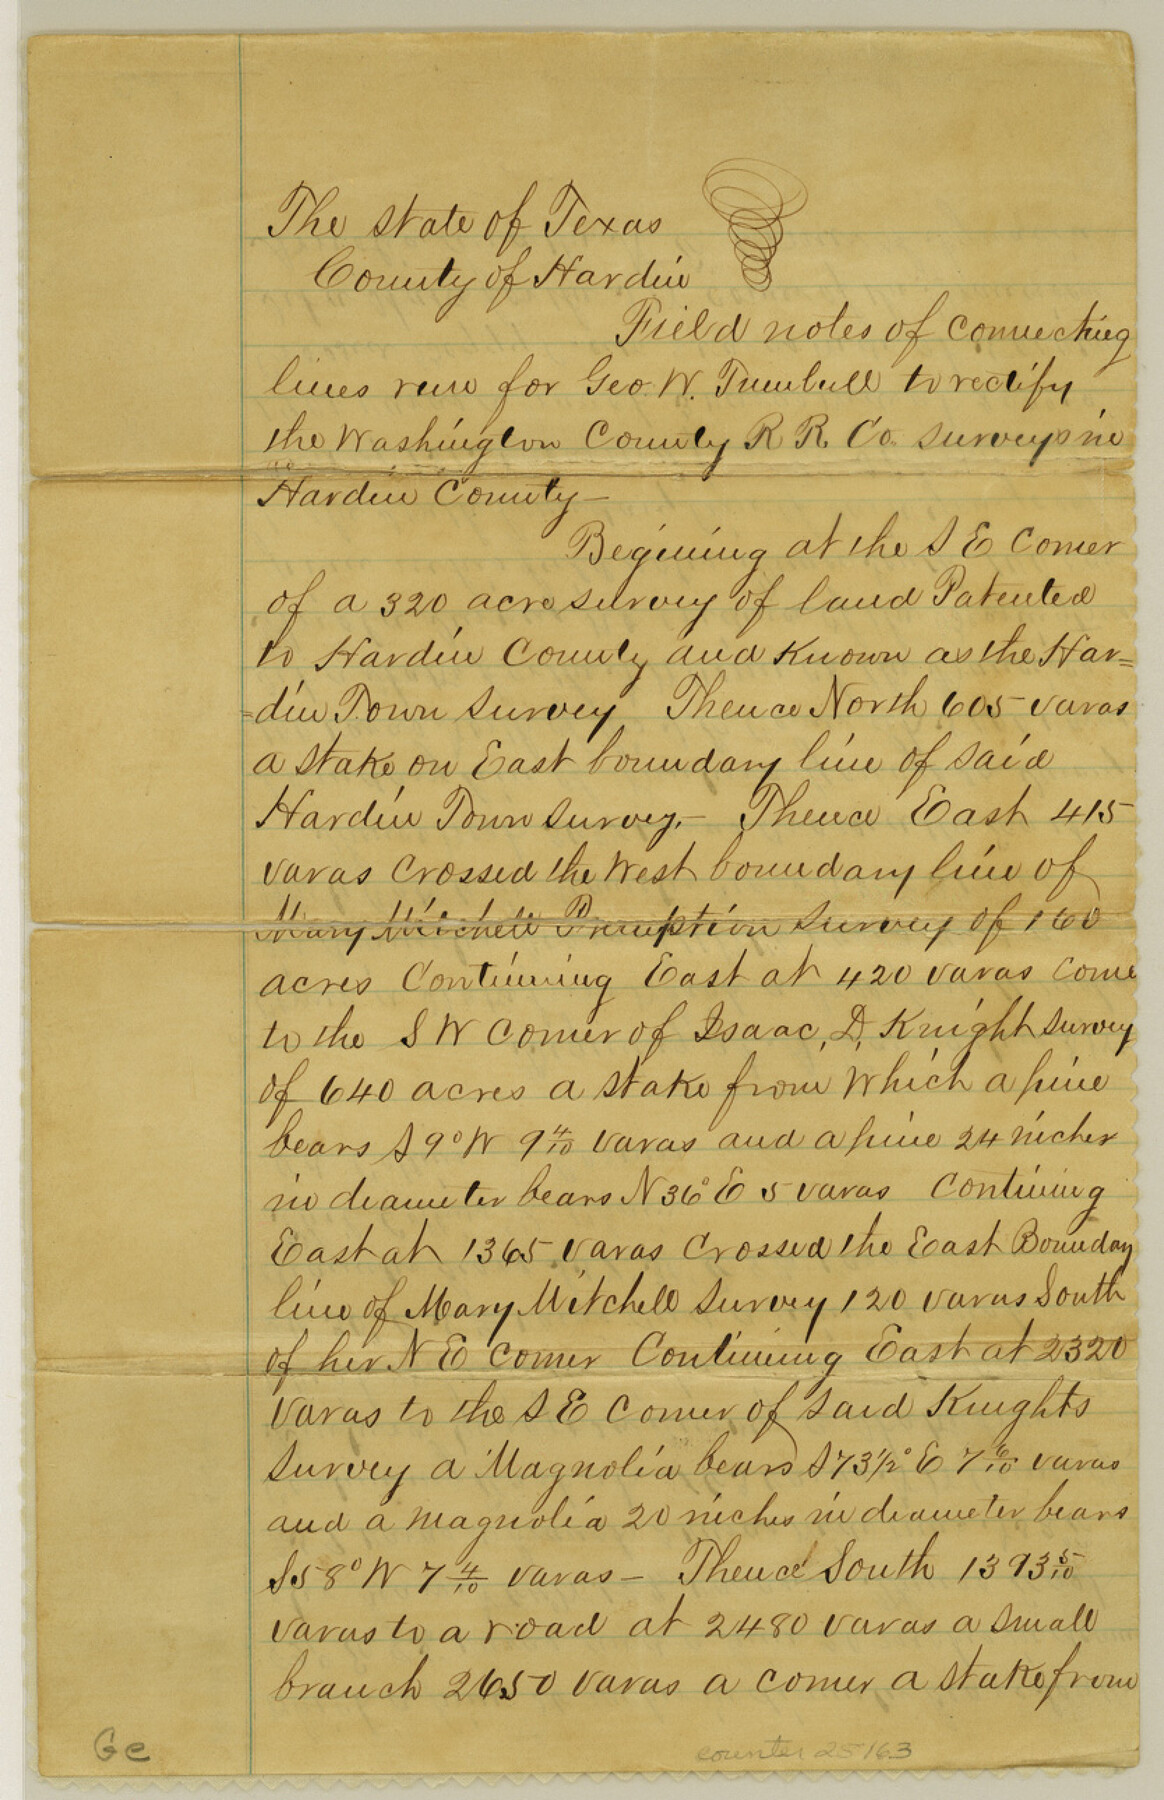 The State of Texas
County of Hardin
Field notes of connecting
lines run for Geo. W. Turnbull to rectify
the Washington County R R. Co. surveys in
Hardin County—
Begining at the S E Corner
of a 320 acre survey of land Patented
to Hardin County and Known as the Har=
=din Town Survey Thence North 605 varas
a stake on East boundary line of said
Hardin Town survey.— Thence East 415
varas crossed the West boundary line of
Mary Mitchell Premption survey of 160
acres Continuing East at 420 varas come
to the S W Corner of Isaac, D, Knight survey
of 640 acres a stake from which a pine
bears S 9° W 9 4/10 varas and a pine 24 inches
in diameter bears N 36° E 5 varas Contining
East at 1365 varas crossed the East Bounday
line of Mary Mitchell Survey 120 varas South
of her N E Corner Continuing East at 2320
varas to the S E Corner of said Knights
survey a Magnolia bears S 73 1/2° E 7 6/10 varas
and a magnolia 20 inches in diameter bears
S 58° W 7 4/10 varas— Thence South 1393 5/10
varas to a road at 2480 varas a small
branch 2650 varas a corner a stake from
Ge
counter 25163